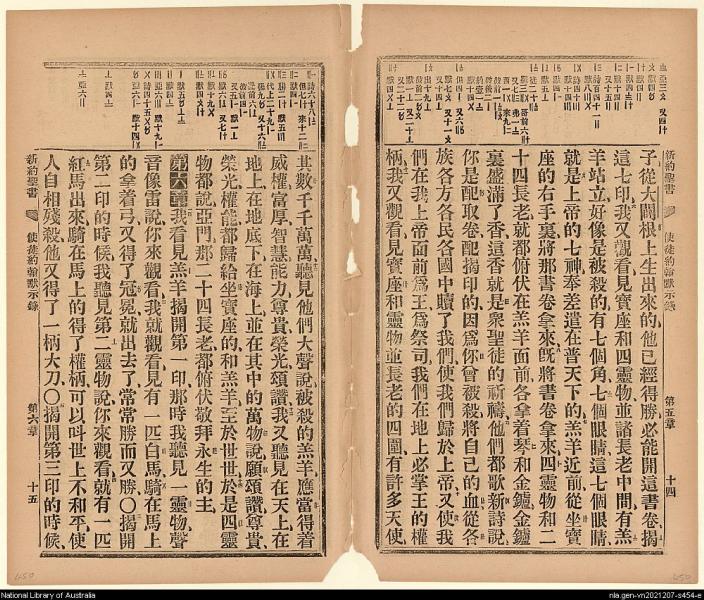 新約聖書
使徒約翰默示錄
第五章
十四
子從大闢根上生出來的他已經得勝必能開這書卷揭
這七印我又觀看見寶座和四靈物並諸長老中間有羔
羊站立好像是被殺的有七個角七個眼睛這七個眼睛
就是上帝的七神奉差遣在普天下的羔羊近前從坐寶
座的右手裏將那書卷拿來旣將書卷拿來四靈物和二
十四長老就都俯伏在羔羊面前各拿着琴和金鑪金鑪
裏盛滿了香這香就是衆聖徒的祈禱他們都歌新詩說
你是配取卷配揭印的因爲你曾被殺將自己的血從各
族各方各民各國中贖了我們使我們歸於上帝又使我
們在我上帝面前爲王爲祭司我們在地上必掌王的權
柄我又觀看見寶座和靈物並長老的四圍有許多天使
其數千千萬萬聽見他們大聲說被殺的羔羊應當得着
威權富厚智慧能力尊貴榮光頌讚我又聽見在天上在
地上在地底下在海上並在其中的萬物說願頌讚尊貴
榮光權能都歸給坐寶座的和羔羊至於世世於是四靈
物都說亞門那二十四長老都俯伏敬拜永生的主
第六章我看見羔羊揭開第一印那時我聽見一靈物聲
音像雷說你來觀看我就觀看見有一匹白馬騎在馬上
的拿着弓又得了冠冕就出去了常常勝而又勝〇揭開
第二印的時候我聽見第二靈物說你來觀看就有一匹
紅馬出來騎在馬上的得了權柄可以叫世上不和平使
人自相殘殺他又得了一柄大刀〇揭開第三印的時候
新約聖書
使徒約翰默示錄
第六章
十五
National Library of Australia
nla.gen-vn2021207-s454-e